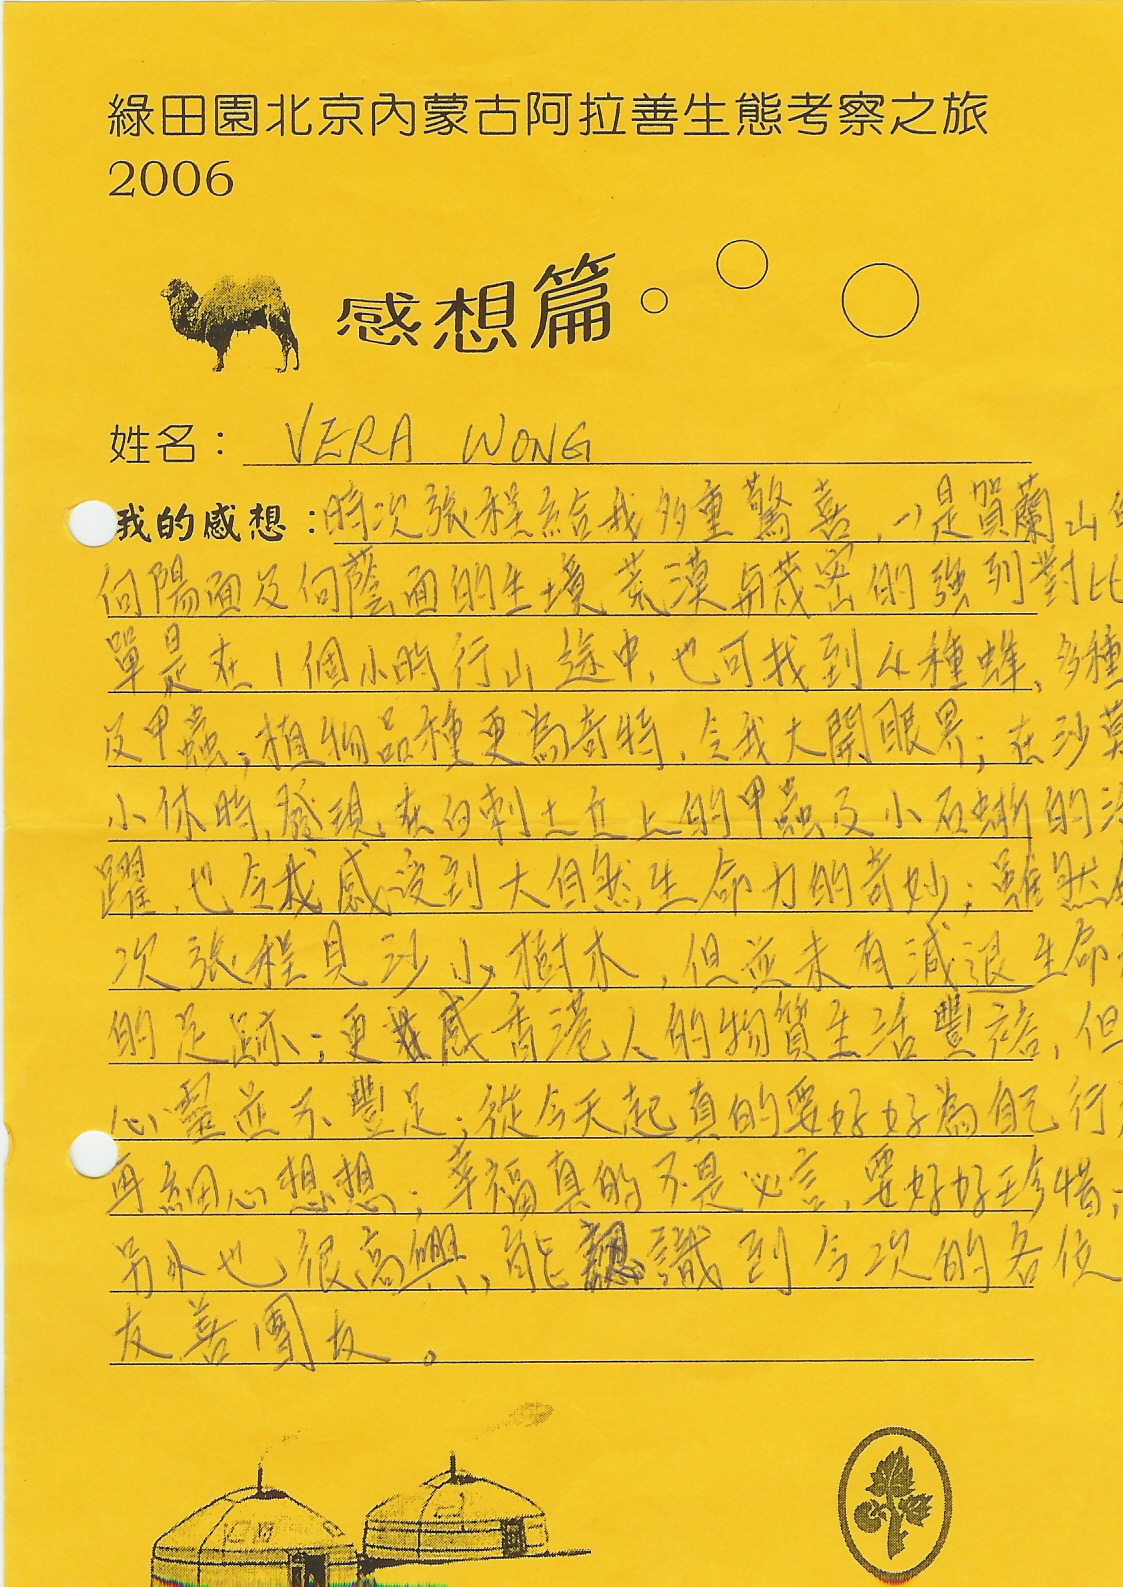 綠田園北京內蒙古阿拉善生態考察之旅
2006
感想篇
姓名： VERA WONG
我的感想：時次張程給我多重驚喜，一是賀蘭山
向陽面及向蔭面的生境荒漠與茂密的強列對比
單是在1個小時行山途中，也可找到4種蜂、多種
及甲蟲；植物品種更為奇特，令我大開眼界；在沙漠
小休時，發現在白刺土丘上的甲蟲及小石蜥的活
躍，也令我感受到大自然生命力的奇妙；雖然
次張程見沙小樹木，但並未有減退生命
的足跡；更感香港人的物質生活豐裕，但
心靈並不豐足；從今天起真的要好好為自己行
再細心想想；幸福真的不是必言，要好好珍惜；
另外也很高興，能識到今次的各位
友善團友。